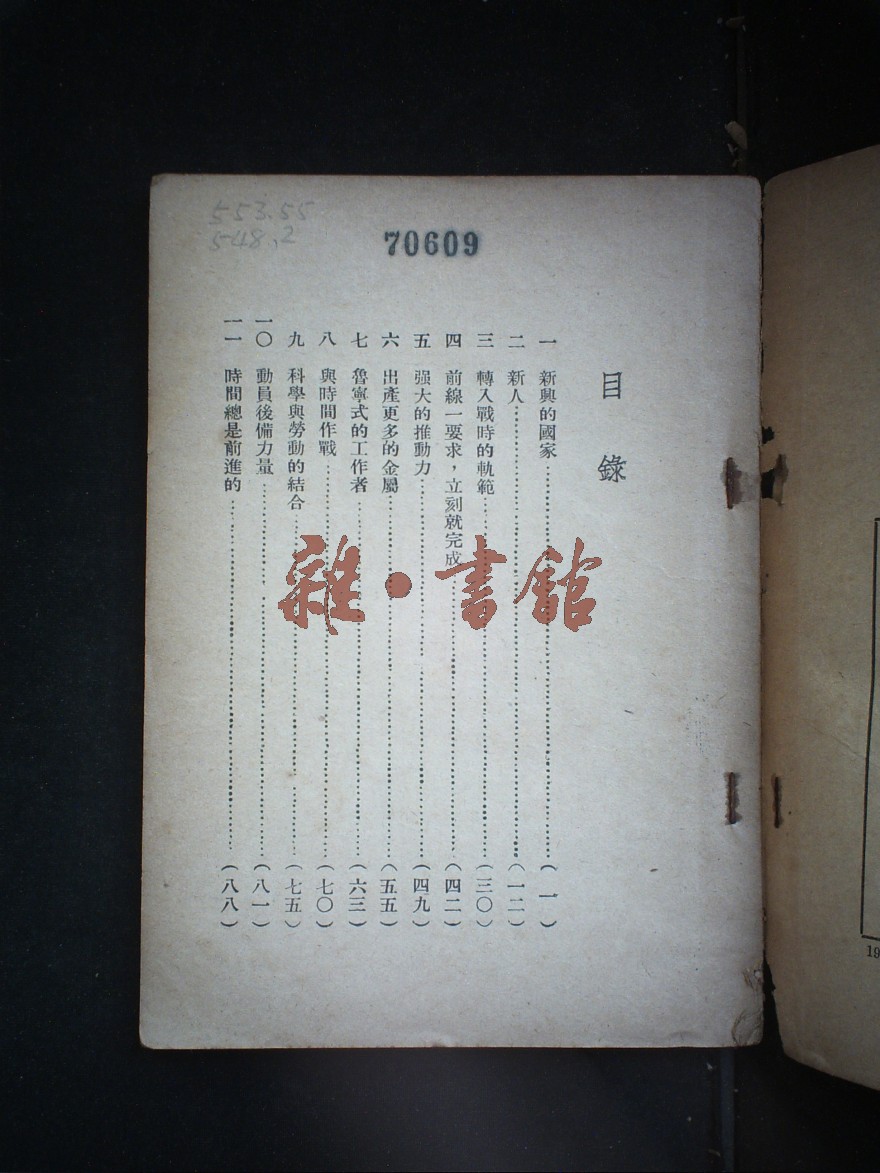 553.55
548.2
70609
目錄
一 新興的國家……(一)
二 新人……(一二)
三 轉入戰時的軌範……(三〇)
四 前線一要求，立刻就完成……(四二)
五 强大的推動力……(四九)
六 出產更多的金屬……(五五)
七 魯寧式的工作者……(六三)
八 與時間作戰……(七〇)
九 科學與勞動的結合……(七五)
一〇 動員後備力量……(八一)
一一 時間總是前進的……(八八)
雜·書館
19